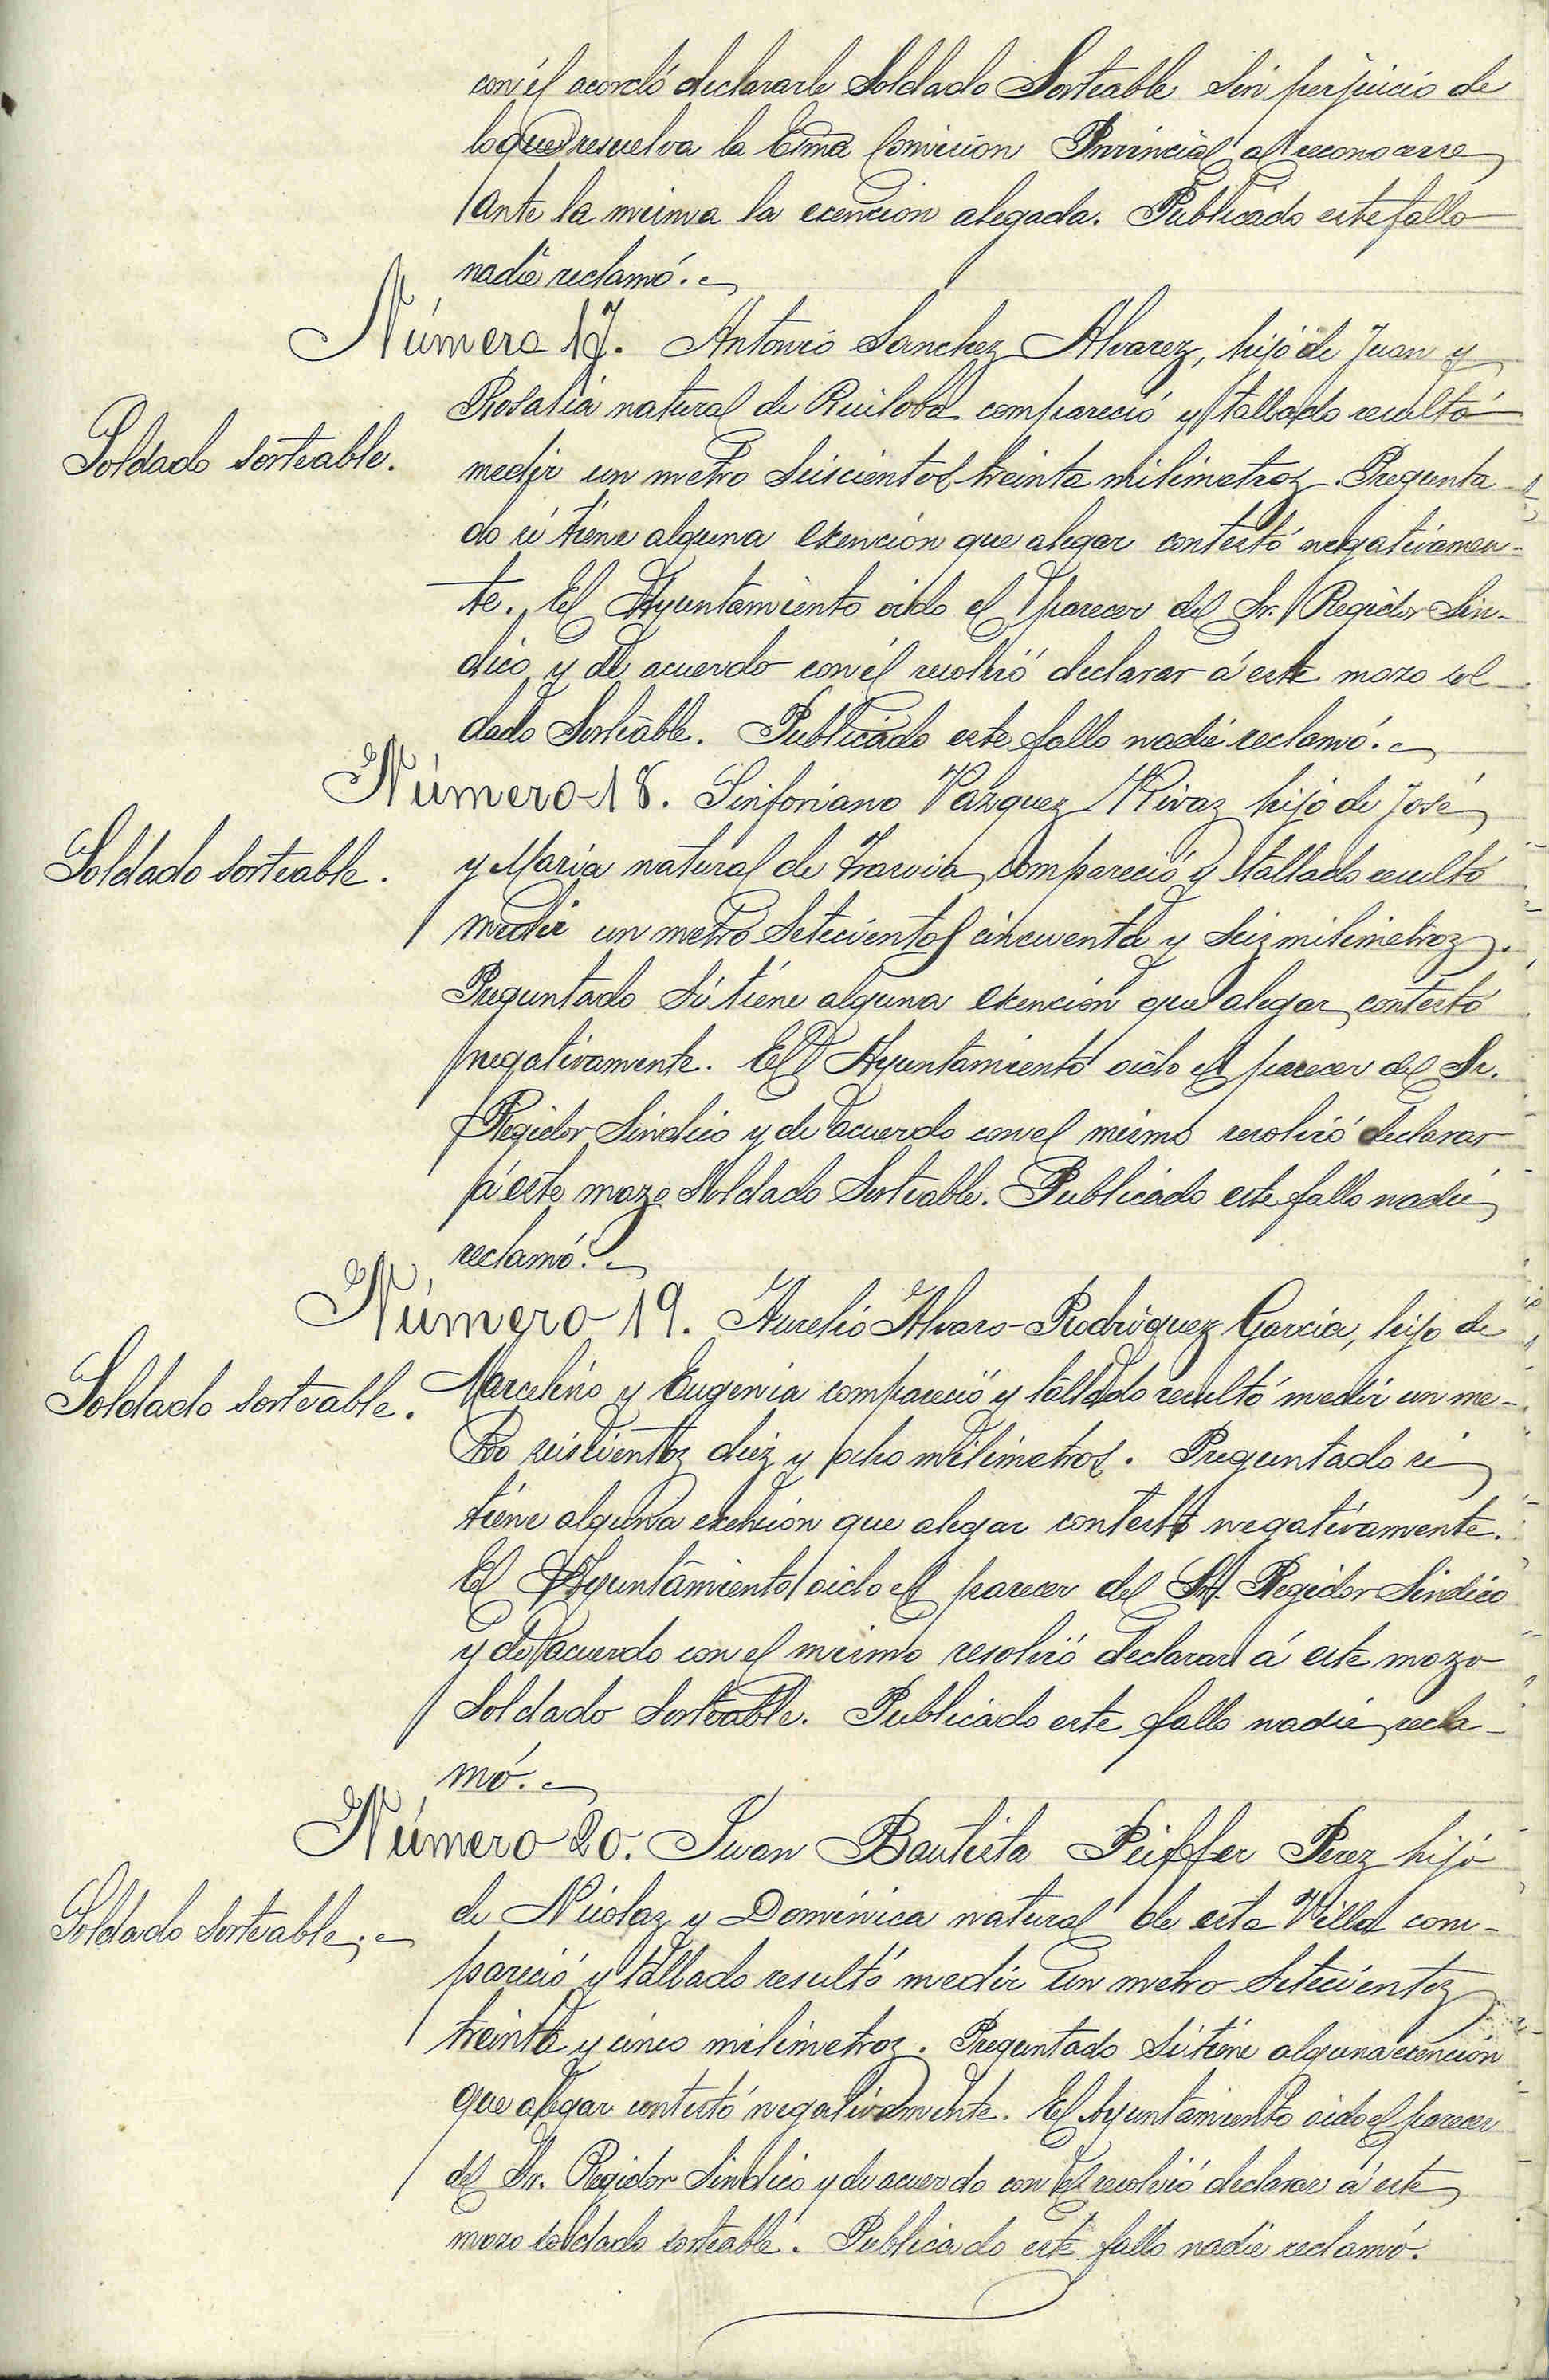 con él acordó declararle Soldado Sorteable sin perjuicio de
lo que resuelva la Exma Comision Provincial al reconocerse
ante la misma la exencion alegada. Publicado este fallo
nadie reclamó.
Número 17. Antonio Sanchez Alvarez, hijo de Juan y
Rosalia natural de Ruiloba compareció y tallado resultó
Soldado sorteable.
medir un metro seiscientos treinta milimetros. Pregunta
do si tiene alguna exencion que alegar contestó negativamen-
te. El Ayuntamiento oido el parecer del Sr. Regidor Sin-
dico y de acuerdo con él resolvió declarar á este mozo sol
dado Sorteable. Publicado este fallo nadie reclamó.
Número 18. Sinforiano Vazquez Rivaz hijo de José
Soldado sorteable.
y Maria natural de Travia compareció y tallado resultó
medir un metro Setecientos cincuenta y seis milimetros.
Preguntado si tiene alguna exencion que alegar contestó
negativamente. El Ayuntamiento oido el parecer del Sr.
Regidor Sindico y de acuerdo con el mismo resolvió declarar
á este mozo Soldado Sorteable. Publicado este fallo nadie
reclamó.
Número 19. Aurelio Alvaro-Rodriguez Garcia, hijo de
Soldado sorteable.
Marcelino y Eugenia compareció y tallado resultó medir un me-
tro seiscientos diez y ocho milimetros. Preguntado si
tiene alguna exencion que alegar contestó negativamente.
El Ayuntamiento oido el parecer del Sr. Regidor Sindico
y de acuerdo con el mismo resolvió declarar á este mozo
Soldado Sorteable. Publicado este fallo nadie recla-
mó.
Número 20. Juan Bautista Peiffer Perez hijo
Soldado sorteable.
de Nicolaz y Dominica natural de esta Villa com-
pareció y tallado resultó medir un metro Setecientoz
treinta y cinco milimetroz. Preguntado si tiene alguna exencion
que alegar contestó negativamente. El Ayuntamiento oido el parecer
del Sr. Regidor Sindico y de acuerdo con el resolvió declarar á este
mozo soldado sorteable. Publicado este fallo nadie reclamó.